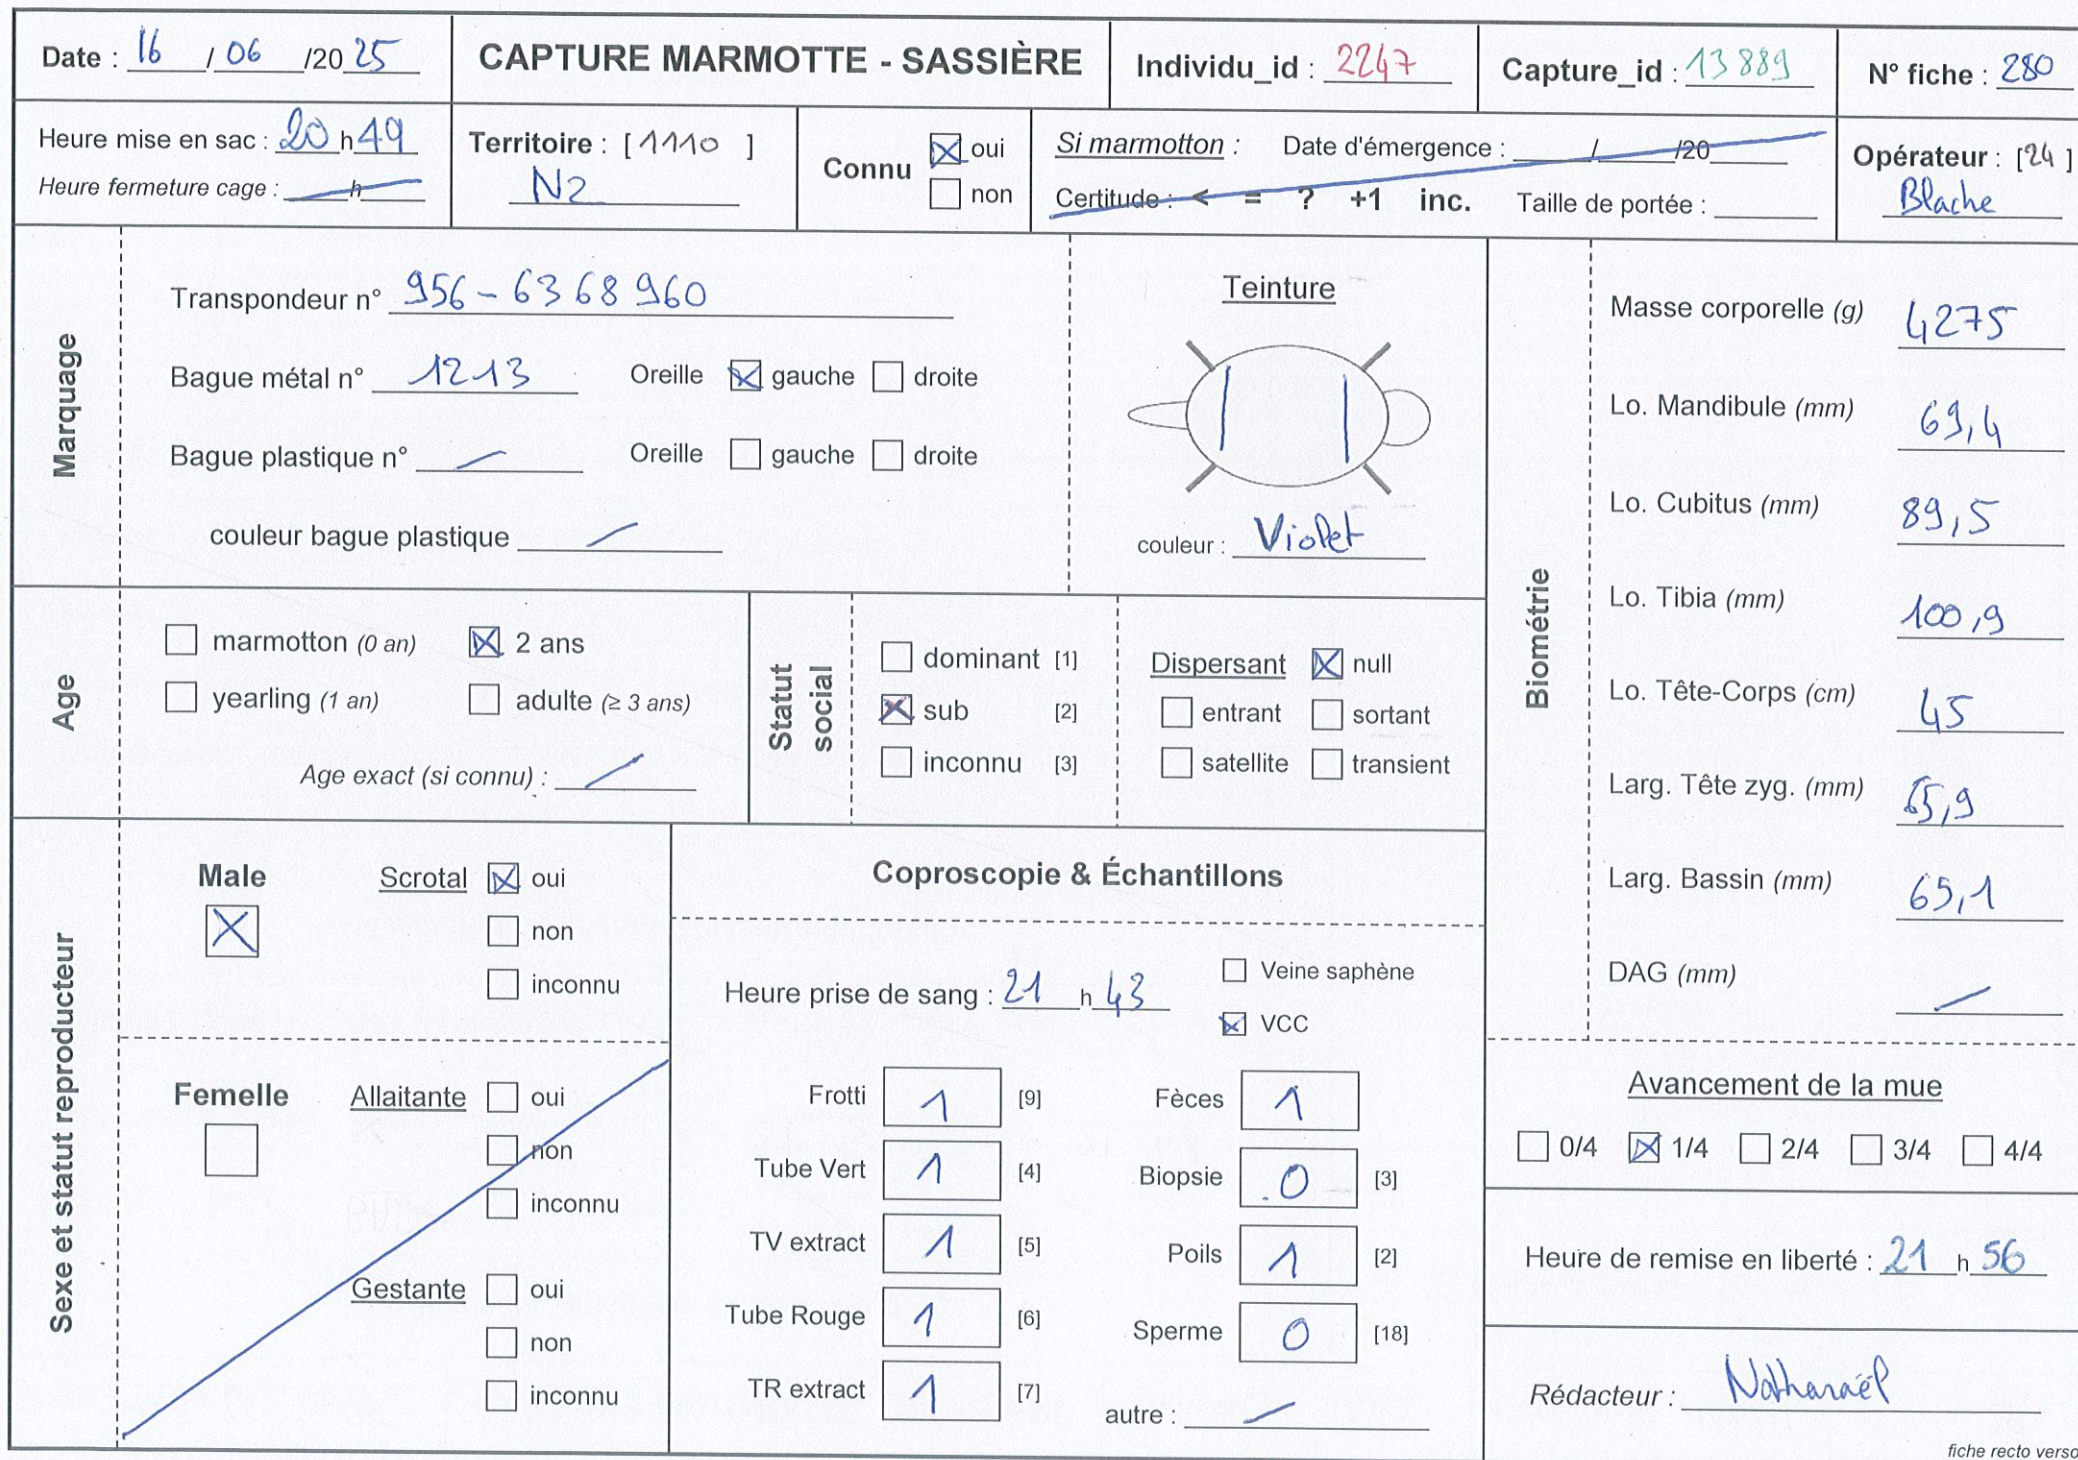 Date : 16 / 06 /20 25
CAPTURE MARMOTTE - SASSIÈRE
Individu_id : 2247
Capture_id : 13889
N° fiche : 280
Heure mise en sac : 20 h 49
Heure fermeture cage : h
Territoire : [ 1110 ]
N2
Connu
oui
non
Si marmotton : Date d'émergence : / /20
Certitude : < = ? +1 inc. Taille de portée :
Opérateur : [24 ]
Blache
Marquage
Transpondeur n° 956-6368960
Bague métal n° 1213 Oreille gauche droite
Bague plastique n° Oreille gauche droite
couleur bague plastique
Teinture
couleur : Violet
Age
marmotton (0 an) 2 ans
yearling (1 an) adulte (≥ 3 ans)
Age exact (si connu) :
Statut social
dominant [1]
sub [2]
inconnu [3]
Dispersant null
entrant sortant
satellite transient
Biométrie
Masse corporelle (g) 4275
Lo. Mandibule (mm) 69,4
Lo. Cubitus (mm) 89,5
Lo. Tibia (mm) 100,9
Lo. Tête-Corps (cm) 45
Larg. Tête zyg. (mm) 65,9
Larg. Bassin (mm) 65,1
DAG (mm)
Sexe et statut reproducteur
Male Scrotal oui
non
inconnu
Femelle Allaitante oui
non
inconnu
Gestante oui
non
inconnu
Coproscopie & Échantillons
Heure prise de sang : 21 h 43
Veine saphène
VCC
Frotti 1 [9] Fèces 1
Tube Vert 1 [4] Biopsie 0 [3]
TV extract 1 [5] Poils 1 [2]
Tube Rouge 1 [6] Sperme 0 [18]
TR extract 1 [7] autre :
Avancement de la mue
0/4 1/4 2/4 3/4 4/4
Heure de remise en liberté : 21 h 56
Rédacteur : Nathanaël
fiche recto verso